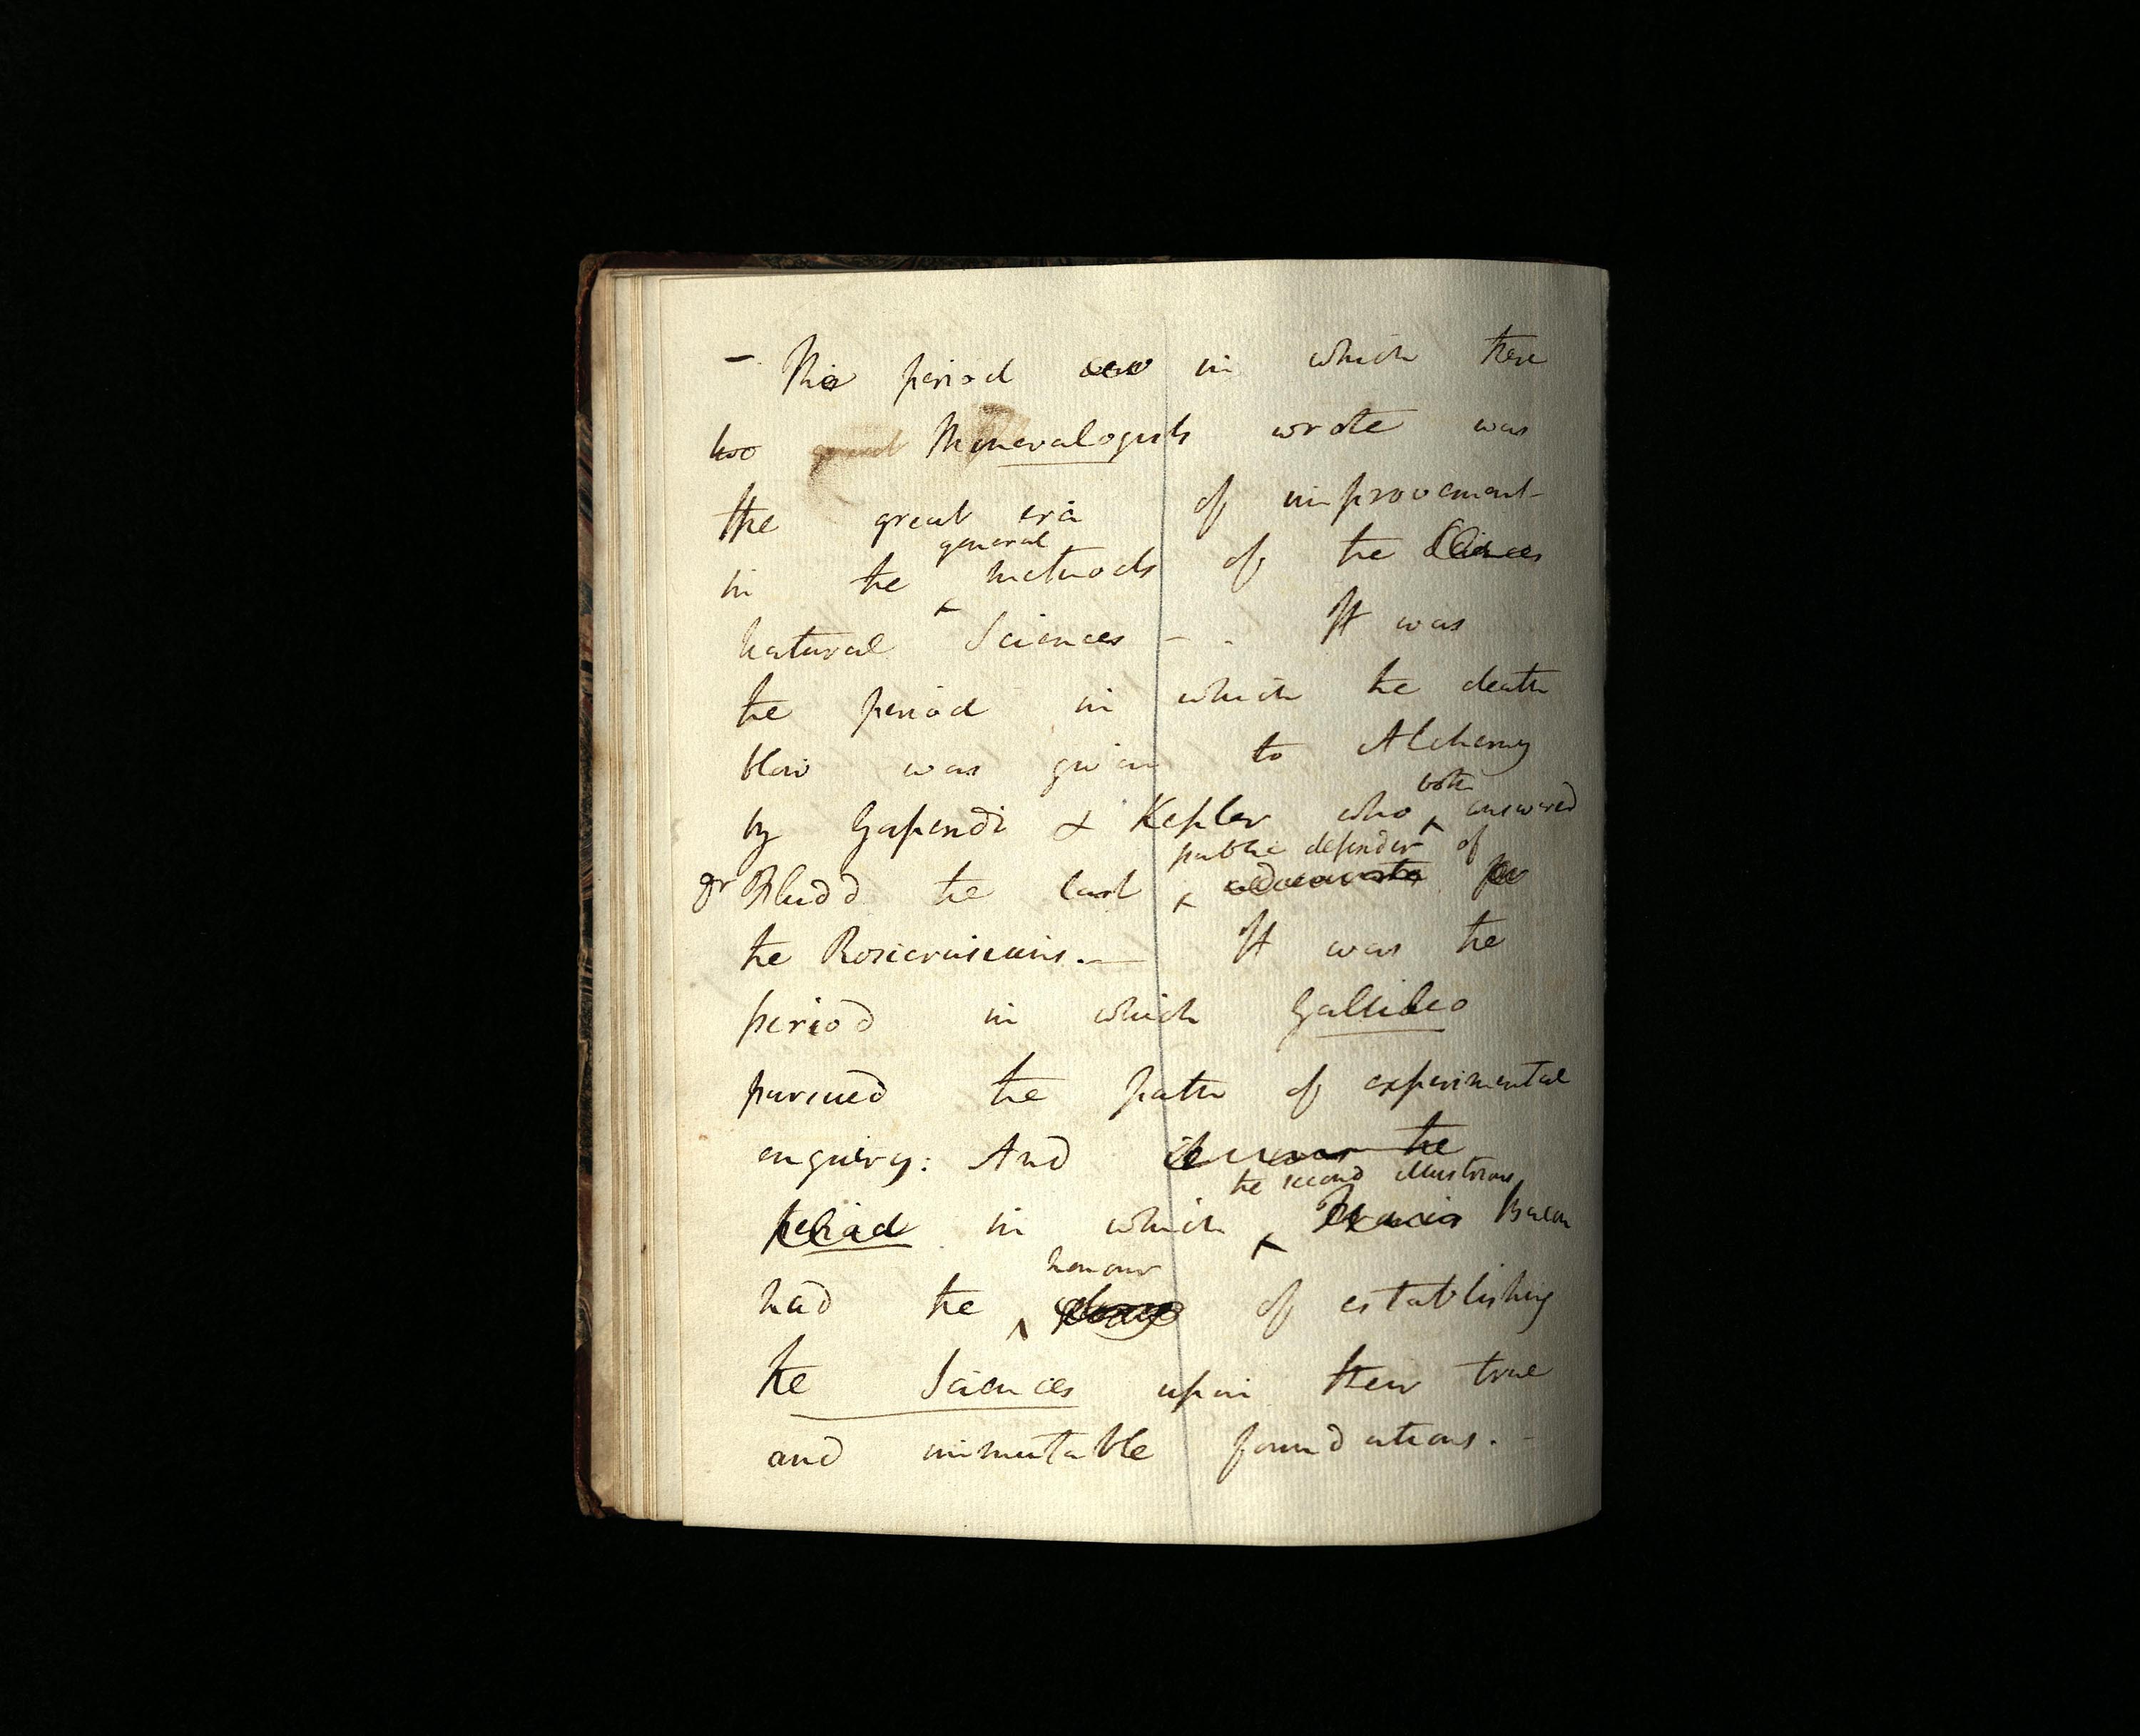 – The period in which these
two great Mineralogists wrote was
the great era of improvement
general
in the methods of the Sciences
natural Sciences – - It was
the period in which the death
blow was given to Alchemy
both
by Gassendi & Kepler who answered
public defender of
Dr Fludd the last advocate
the Rosicrusians. — It was the
period in which Gallileo
pursued the path of experimental
enquiry: And it was the
the second illustrious
period in which Francis Bacon
honour
had the glory of establishing
the Sciences upon their true
and immutable foundations. -